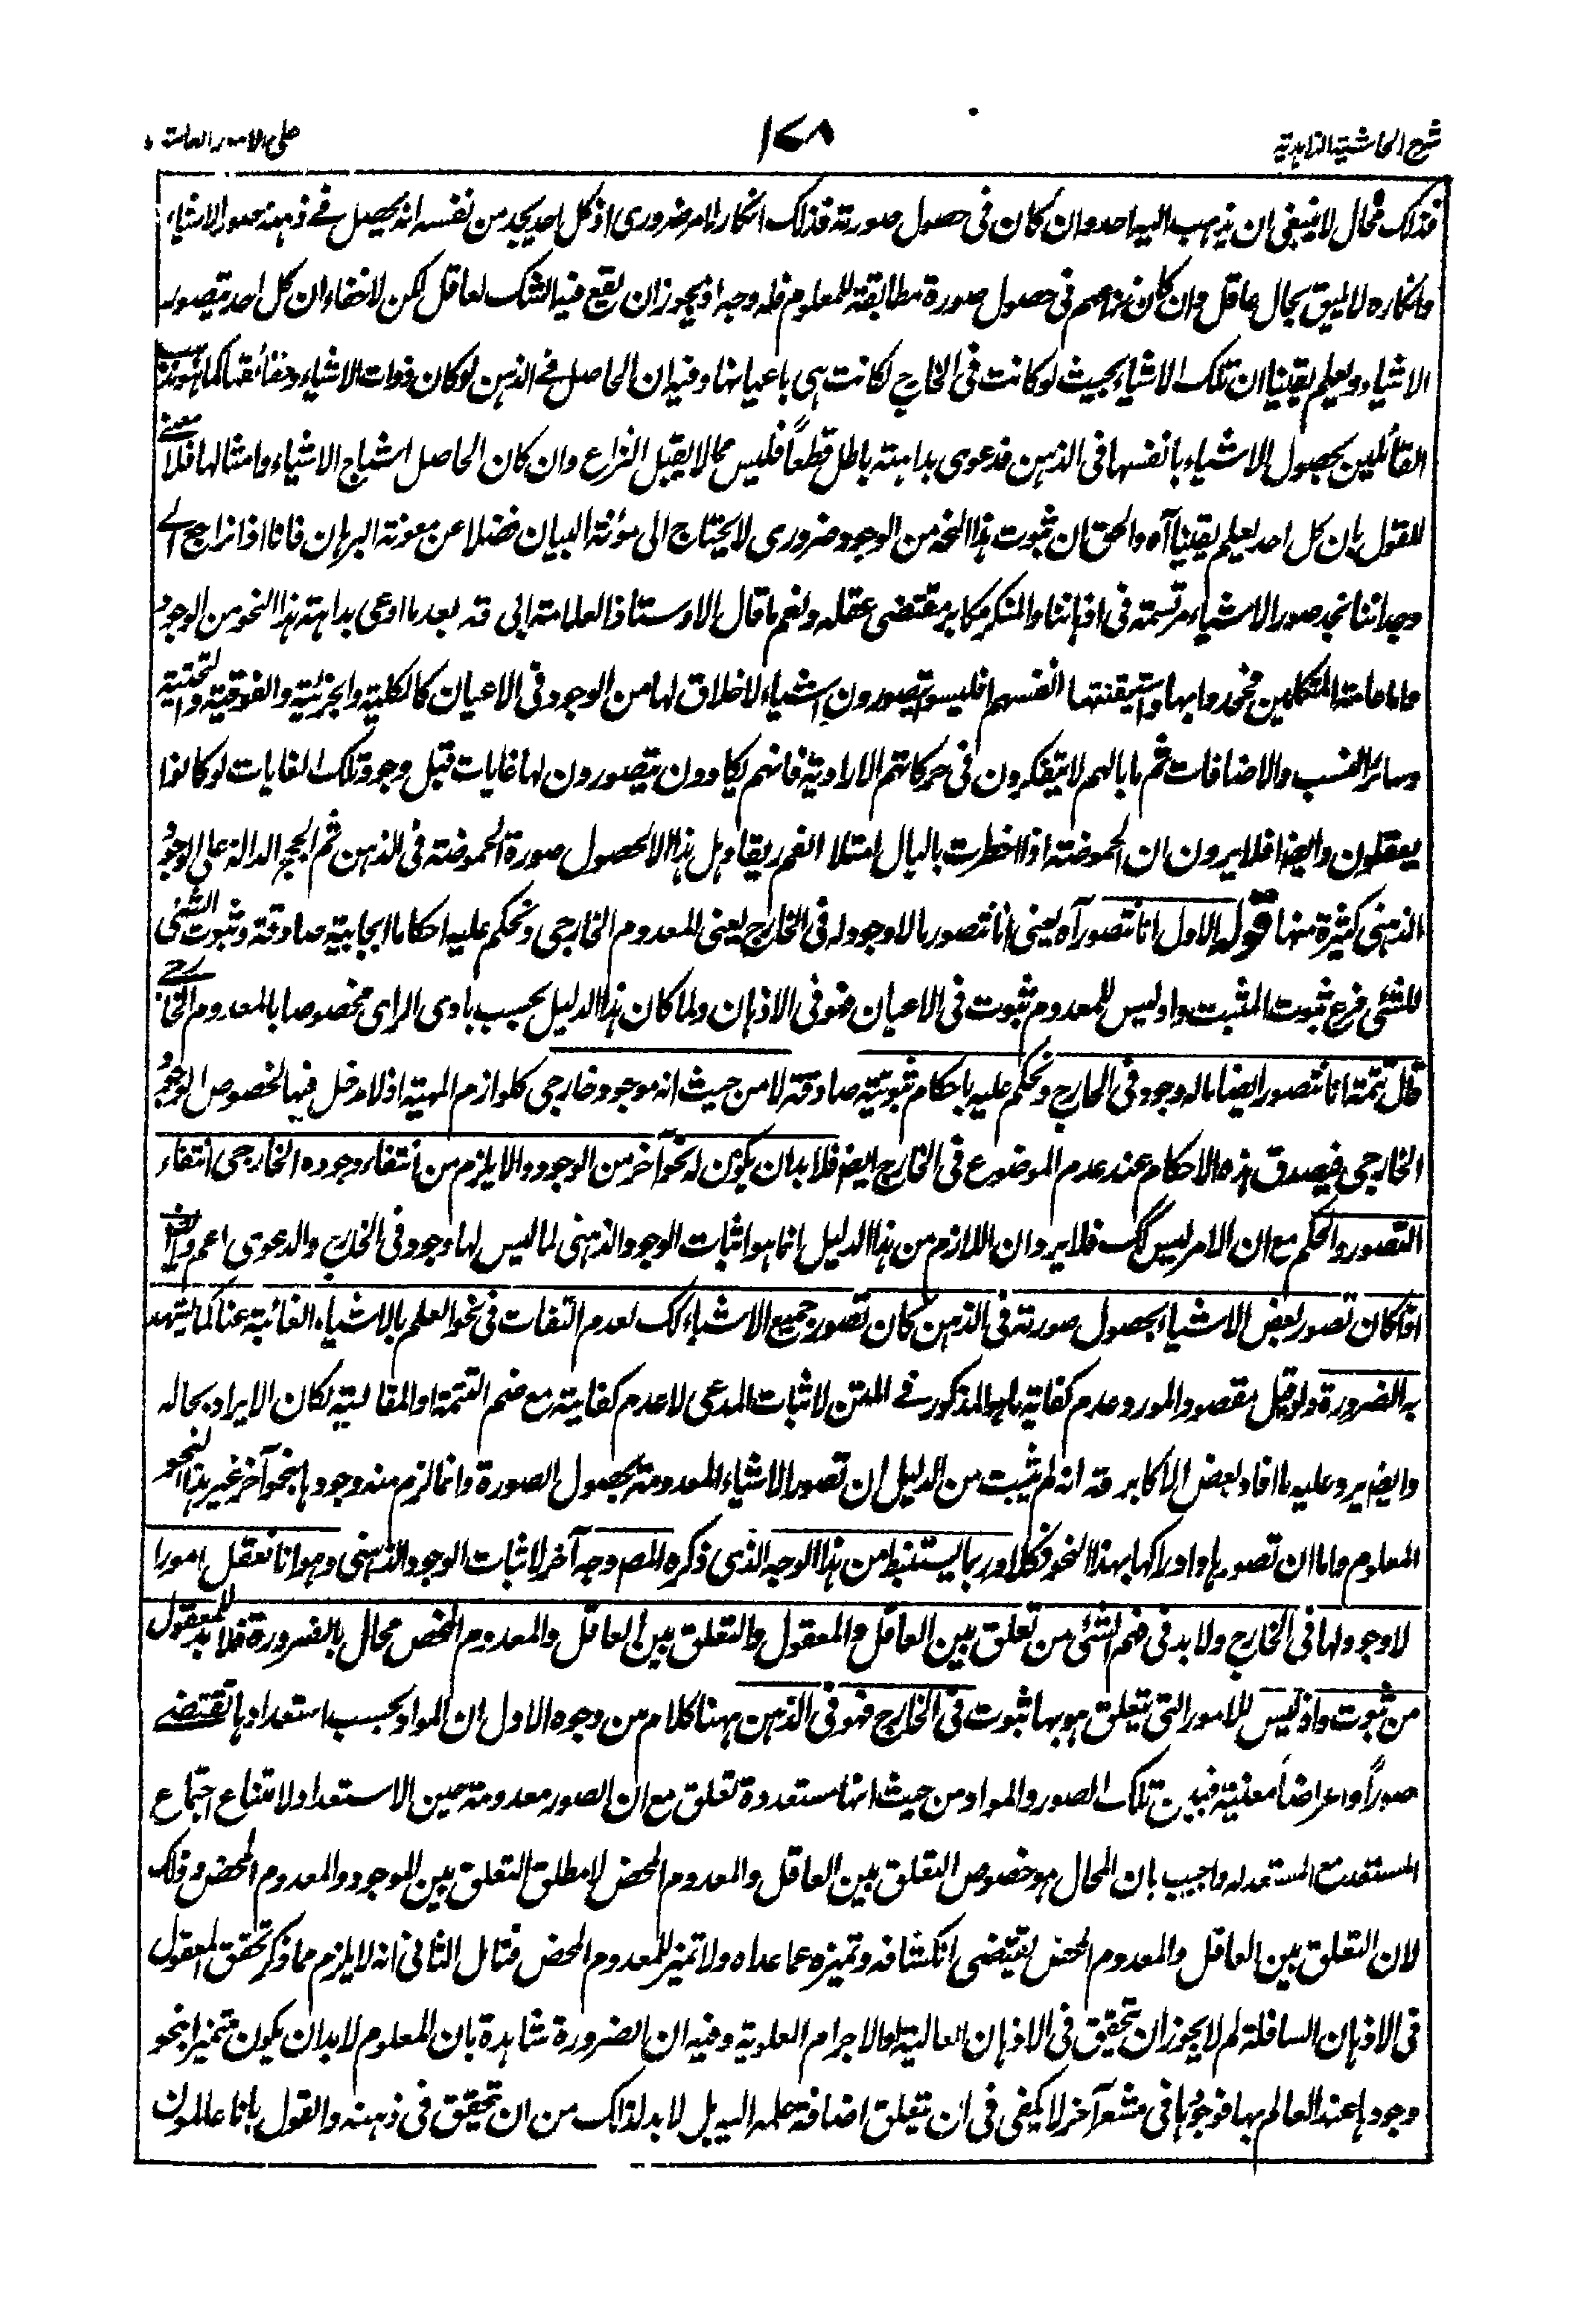 شرح الحاشية الزاهدية
١٧٨
على الامور العامة
فذلك محال لا ينبغى ان يذهب اليه احد وان كان فى حصول صورته فذلك انكار لامر ضرورى اذ كل احد يجد من نفسه انه يحصل فى ذهنه صور الاشياء
وانكاره لا يليق بحال عاقل وان كان نزاعهم فى حصول صورة مطابقة للمعلوم فله وجه اذ يجوز ان يقع فيه الشك لعاقل لكن لا خفاء ان كل احد يتصور
الاشياء ويعلم يقينا ان تلك الاشياء بحيث لو كانت فى الخارج لكانت هى باعيانها وفيه ان الحاصل فى الذهن لو كان ذوات الاشياء وحقائقها كما هو مذهب
القائلين بحصول الاشياء بانفسها فى الذهن فدعوى بداهته باطل قطعاً فليس مما لا يقبل النزاع وان كان الحاصل اشباح الاشياء وامثالها فلا معنى
للقول بان كل احد يعلم يقينا آه والحق ان ثبوت هذا النحو من الوجود ضرورى لا يحتاج الى مؤنة البيان فضلا عن معونة البرهان فانا اذا نراجع الى
وجداننا نجد صور الاشياء مرتسمة فى اذهاننا والمنكر مكابر مقتضى عقله ونعم ما قال الاوستاذ العلامة ابى قده بعد ما ادعى بداهة هذا النحو من الوجود
واما عامة المتكلمين فجحدوا بها واستيقنتها انفسهم افليسوا يتصورون اشياء لا خلاق لها من الوجود فى الاعيان كالكلية والجزئية والفوقية والتحتية
وسائر النسب والاضافات ثم ما بالهم لا يتفكرون فى حركاتهم الارادية فانهم يكادون يتصورون لها غايات قبل وجود تلك الغايات لو كانوا
يعقلون وايضا افلا يرون ان الحموضة اذا اخطرت بالبال امتلا الفم ريقا وهل هذا الا لحصول صورة الحموضة فى الذهن ثم الحجج الدالة على الوجود
الذهنى كثيرة منها قوله الاول انا نتصور آه يعنى انا نتصور ما لا وجود له فى الخارج يعنى للمعدوم الخارجى ونحكم عليه احكاما ايجابية صادقة وثبوت الشئ
للشئ فرع ثبوت المثبت واذ ليس للمعدوم ثبوت فى الاعيان فهو فى الاذهان ولما كان هذا الدليل بحسب بادى الراى مخصوصا بالمعدوم الخارجى
قال تتمة انا نتصور ايضا ما له وجود فى الخارج ونحكم عليه باحكام ثبوتية صادقة لا من حيث انه موجود خارجى كلوازم المهية اذ لا دخل فيها لخصوص الوجود
الخارجى فيصدق هذه الاحكام عند عدم الموضوع فى الخارج ايضا فلا بد ان يكون له نحو آخر من الوجود والا يلزم من انتفاء وجوده الخارجى انتفاء
التصور والحكم مع ان الامر ليس كك فلا يرد ان اللازم من هذا الدليل انما هو اثبات الوجود الذهنى لما ليس لها وجود فى الخارج والدعوى اعم وايضا
اذا كان تصور بعض الاشياء بحصول صورته فى الذهن كان تصور جميع الاشياء كك لعدم التفات فى نحو العلم بالاشياء الغائبة عنا كما يشهد
به الضرورة ولو قيل مقصود المورد عدم كفاية ما هو المذكور فى المتن لاثبات المدعى لا عدم كفايته مع ضم التتمة او المقالية لكان الايراد بحاله
وايضا يرد عليه ما افاد بعض الاكابر قده انه لم يثبت من الدليل ان تصور الاشياء المعدومة بحصول الصورة وانما لزم منه وجودها بنحو آخر غير هذا النحو
المعلوم واما ان تصورها وادراكها بهذا النحو فكلا وربما يستنبط من هذا الوجه الذى ذكره المصـ وجه آخر لاثبات الوجود الذهنى وهو انا نعقل امورا
لا وجود لها فى الخارج ولا بد فى فهم الشئ من تعلق بين العاقل والمعقول والتعلق بين العاقل والمعدوم المحض محال بالضرورة فلا بد للمعقول
من ثبوت واذ ليس للامور التى تعلق هو بها ثبوت فى الخارج فهو فى الذهن ههنا كلام من وجوه الاول ان المواد بحسب استعدادها تقتضى
صوراً واعراضاً معينة فبين تلك الصور والمواد من حيث انها مستعدة تعلق مع ان الصور معدومة حين الاستعداد لامتناع اجتماع
المستعد مع المستعد له واجيب بان المحال هو خصوص التعلق بين العاقل والمعدوم المحض لا مطلق التعلق بين الموجود والمعدوم المحض وذلك
لان التعلق بين العاقل والمعدوم المحض يقتضى انكشافه وتميزه عما عداه ولا تميز للمعدوم المحض فتامل الثانى انه لا يلزم مما ذكر تحقق المعقول
فى الاذهان السافلة لم لا يجوز ان تحقيق فى الاذهان العالية او الاجرام العلوية وفيه ان الضرورة شاهدة بان المعلوم لا بد ان يكون متميزا بنحو
وجودها عند العالم بها فوجودها فى مشعر آخر لا يكفى فى ان يتعلق اضافة علمه اليه بل لا بد لذلك من ان تحقيق فى ذهنه والقول بانا عالمون